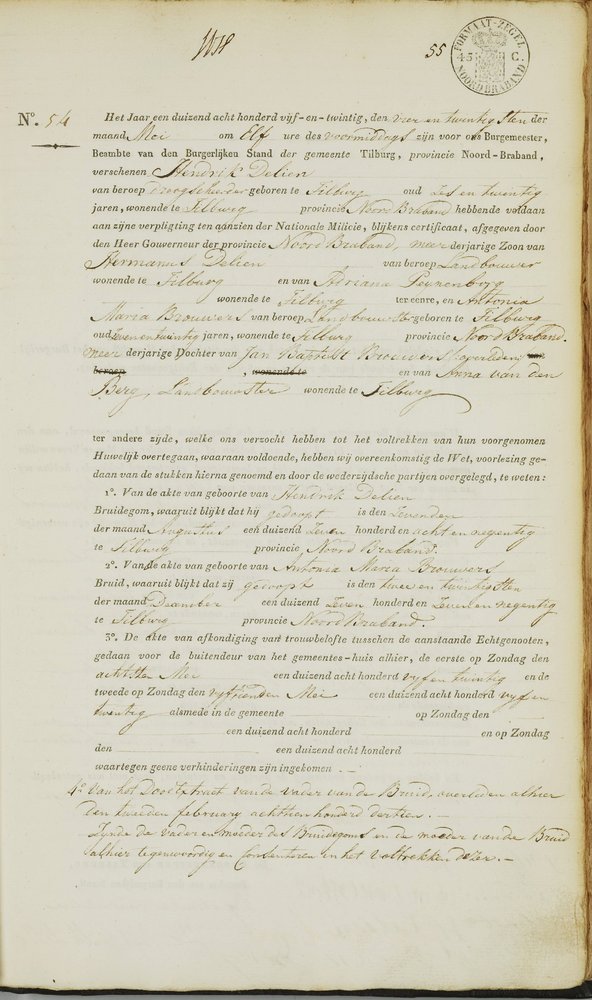 55
FORMAAT-ZEGEL
45 C.
NOORDBRABAND
N°. 54
Het Jaar een duizend acht honderd vijf-en-twintig, den vier en twintigsten der
maand Mei om Elf ure des voormiddags zijn voor ons Burgemeester,
Beambte van den Burgerlijken Stand der gemeente Tilburg, provincie Noord-Braband,
verschenen Hendrik Delien
van beroep droogscheerder geboren te Tilburg oud zes en twintig
jaren, wonende te Tilburg provincie Noord Braband hebbende voldaan
aan zijne verpligting ten aanzien der Nationale Militie, blijkens certificaat, afgegeven door
den Heer Gouverneur der provincie Noord Braband, meer derjarige Zoon van
Hermanus Delien van beroep Landbouwer
wonende te Tilburg en van Adriana
wonende te Tilburg ter eenre, en Antonia
Maria Brouwers van beroep Landbouwster geboren te Tilburg
oud zevenentwintig jaren, wonende te Tilburg provincie Noord Braband.
meer derjarige Dochter van Jan Baptist Brouwers overleden van
beroep , wonende te en van Anna van den
Berg, Landbouwster wonende te Tilburg
ter andere zijde, welke ons verzocht hebben tot het voltrekken van hun voorgenomen
Huwelijk overtegaan, waaraan voldoende, hebben wij overeenkomstig de Wet, voorlezing ge-
daan van de stukken hierna genoemd en door de wederzijdsche partijen overgelegd, te weten:
1°. Van de akte van geboorte van Hendrik Delien
Bruidegom, waaruit blijkt dat hij gedoopt is den zevenden
der maand Augustus een duizend zeven honderd en acht en negentig
te Tilburg provincie Noord Braband.
2°. Van de akte van geboorte van Antonia Maria Brouwers
Bruid, waaruit blijkt dat zij gedoopt is den twee en twintigsten
der maand December een duizend zeven honderd en zeven en negentig
te Tilburg provincie Noord Braband.
3°. De akte van afkondiging van trouwbelofte tusschen de aanstaande Echtgenooten,
gedaan voor de buitendeur van het gemeentes-huis alhier, de eerste op Zondag den
achtsten Mei een duizend acht honderd vyf en twintig en de
tweede op Zondag den vyftienden Mei een duizend acht honderd vyf en
twentig alsmede in de gemeente op Zondag den
een duizend acht honderd en op Zondag
den een duizend acht honderd
waartegen geene verhinderingen zijn ingekomen.
4° Van het Doodextract van de vader van de Bruid, overleden alhier
den tweeden february achttienhonderd dertien.
Zynde de vader en moeder des Bruidegoms en de moeder van de Bruid
alhier tegenwoordig en Consenteren in het voltrekken dezer.